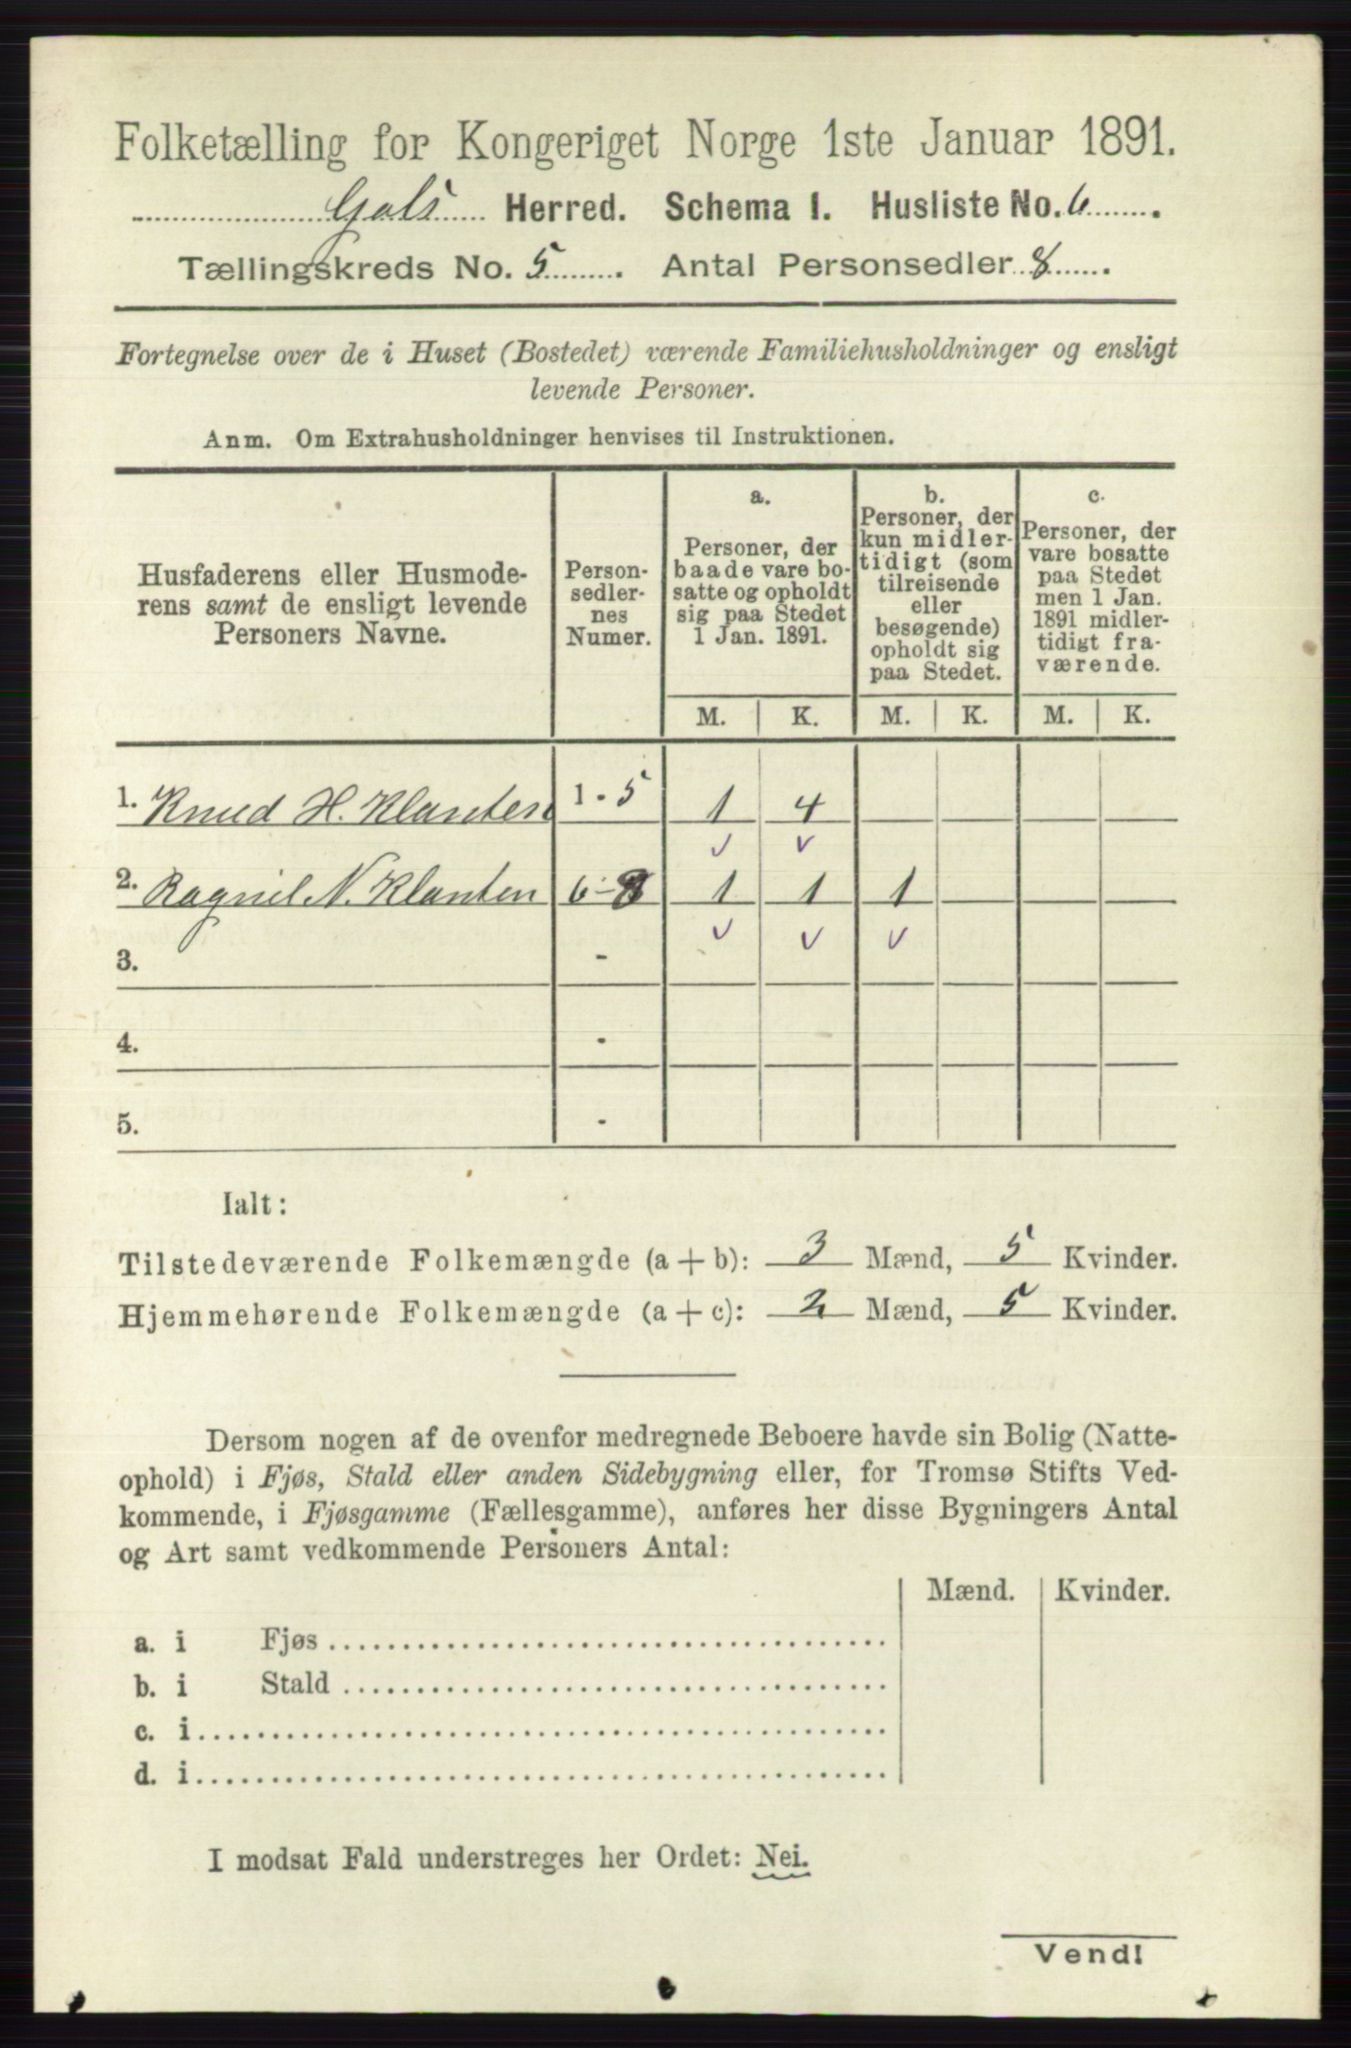 Folketælling for Kongeriget Norge 1ste Januar 1891.
Gols Herred. Schema I. Husliste No. 6
Tællingskreds No. 5. Antal Personsedler 8.
Fortegnelse over de i Huset (Bostedet) værende Familiehusholdninger og ensligt
levende Personer.
Anm. Om Extrahusholdninger henvises til Instruktionen.
Husfaderens eller Husmode-
rens samt de ensligt levende
Personers Navne.
Person-
sedler-
nes
Numer.
a.
Personer, der
baade vare bo-
satte og opholdt
sig paa Stedet
1 Jan. 1891.
b.
Personer, der
kun midler-
tidigt (som
tilreisende
eller
besøgende)
opholdt sig
paa Stedet.
c.
Personer, der
vare bosatte
paa Stedet
men 1 Jan.
1891 midler-
tidigt fra-
værende.
M. K. M. K. M. K.
1. Knud H. Klanten 1 - 5 1 4
2. Ragnil N. Klanten 6 - 8 1 1 1
3. -
4. -
5. -
Ialt:
Tilstedeværende Folkemængde (a + b): 3 Mænd, 5 Kvinder.
Hjemmehørende Folkemængde (a + c): 2 Mænd, 5 Kvinder.
Dersom nogen af de ovenfor medregnede Beboere havde sin Bolig (Natte-
ophold) i Fjøs, Stald eller anden Sidebygning eller, for Tromsø Stifts Ved-
kommende, i Fjøsgamme (Fællesgamme), anføres her disse Bygningers Antal
og Art samt vedkommende Personers Antal:
Mænd. Kvinder.
a. i Fjøs
b. i Stald
c. i
d. i
I modsat Fald understreges her Ordet: Nei.
Vend!